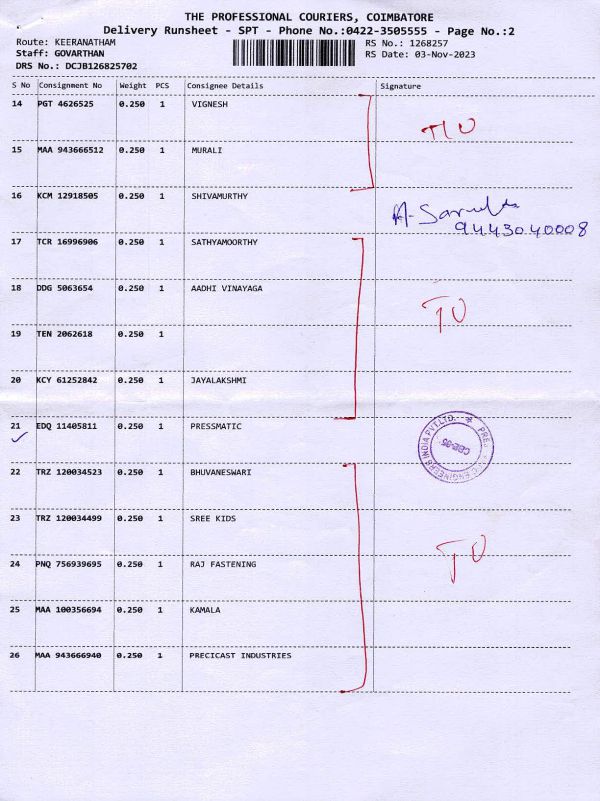 THE PROFESSIONAL COURIERS, COIMBATORE
Delivery Runsheet - SPT - Phone No.:0422-3505555 - Page No.:2
Route: KEERANATHAM RS No.: 1268257
Staff: GOVARTHAN RS Date: 03-Nov-2023
DRS No.: DCJB126825702
S No Consignment No Weight PCS Consignee Details Signature
14 PGT 4626525 0.250 1 VIGNESH
15 MAA 943666512 0.250 1 MURALI
16 KCM 12918505 0.250 1 SHIVAMURTHY
94430 40008
17 TCR 16996906 0.250 1 SATHYAMOORTHY
18 DDG 5063654 0.250 1 AADHI VINAYAGA
19 TEN 2062618 0.250 1
20 KCY 61252842 0.250 1 JAYALAKSHMI
21 EDQ 11405811 0.250 1 PRESSMATIC
ENGINEERS INDIA PVT.LTD.
22 TRZ 120034523 0.250 1 BHUVANESWARI
23 TRZ 120034499 0.250 1 SREE KIDS
24 PNQ 756939695 0.250 1 RAJ FASTENING
25 MAA 100356694 0.250 1 KAMALA
26 MAA 943666940 0.250 1 PRECICAST INDUSTRIES